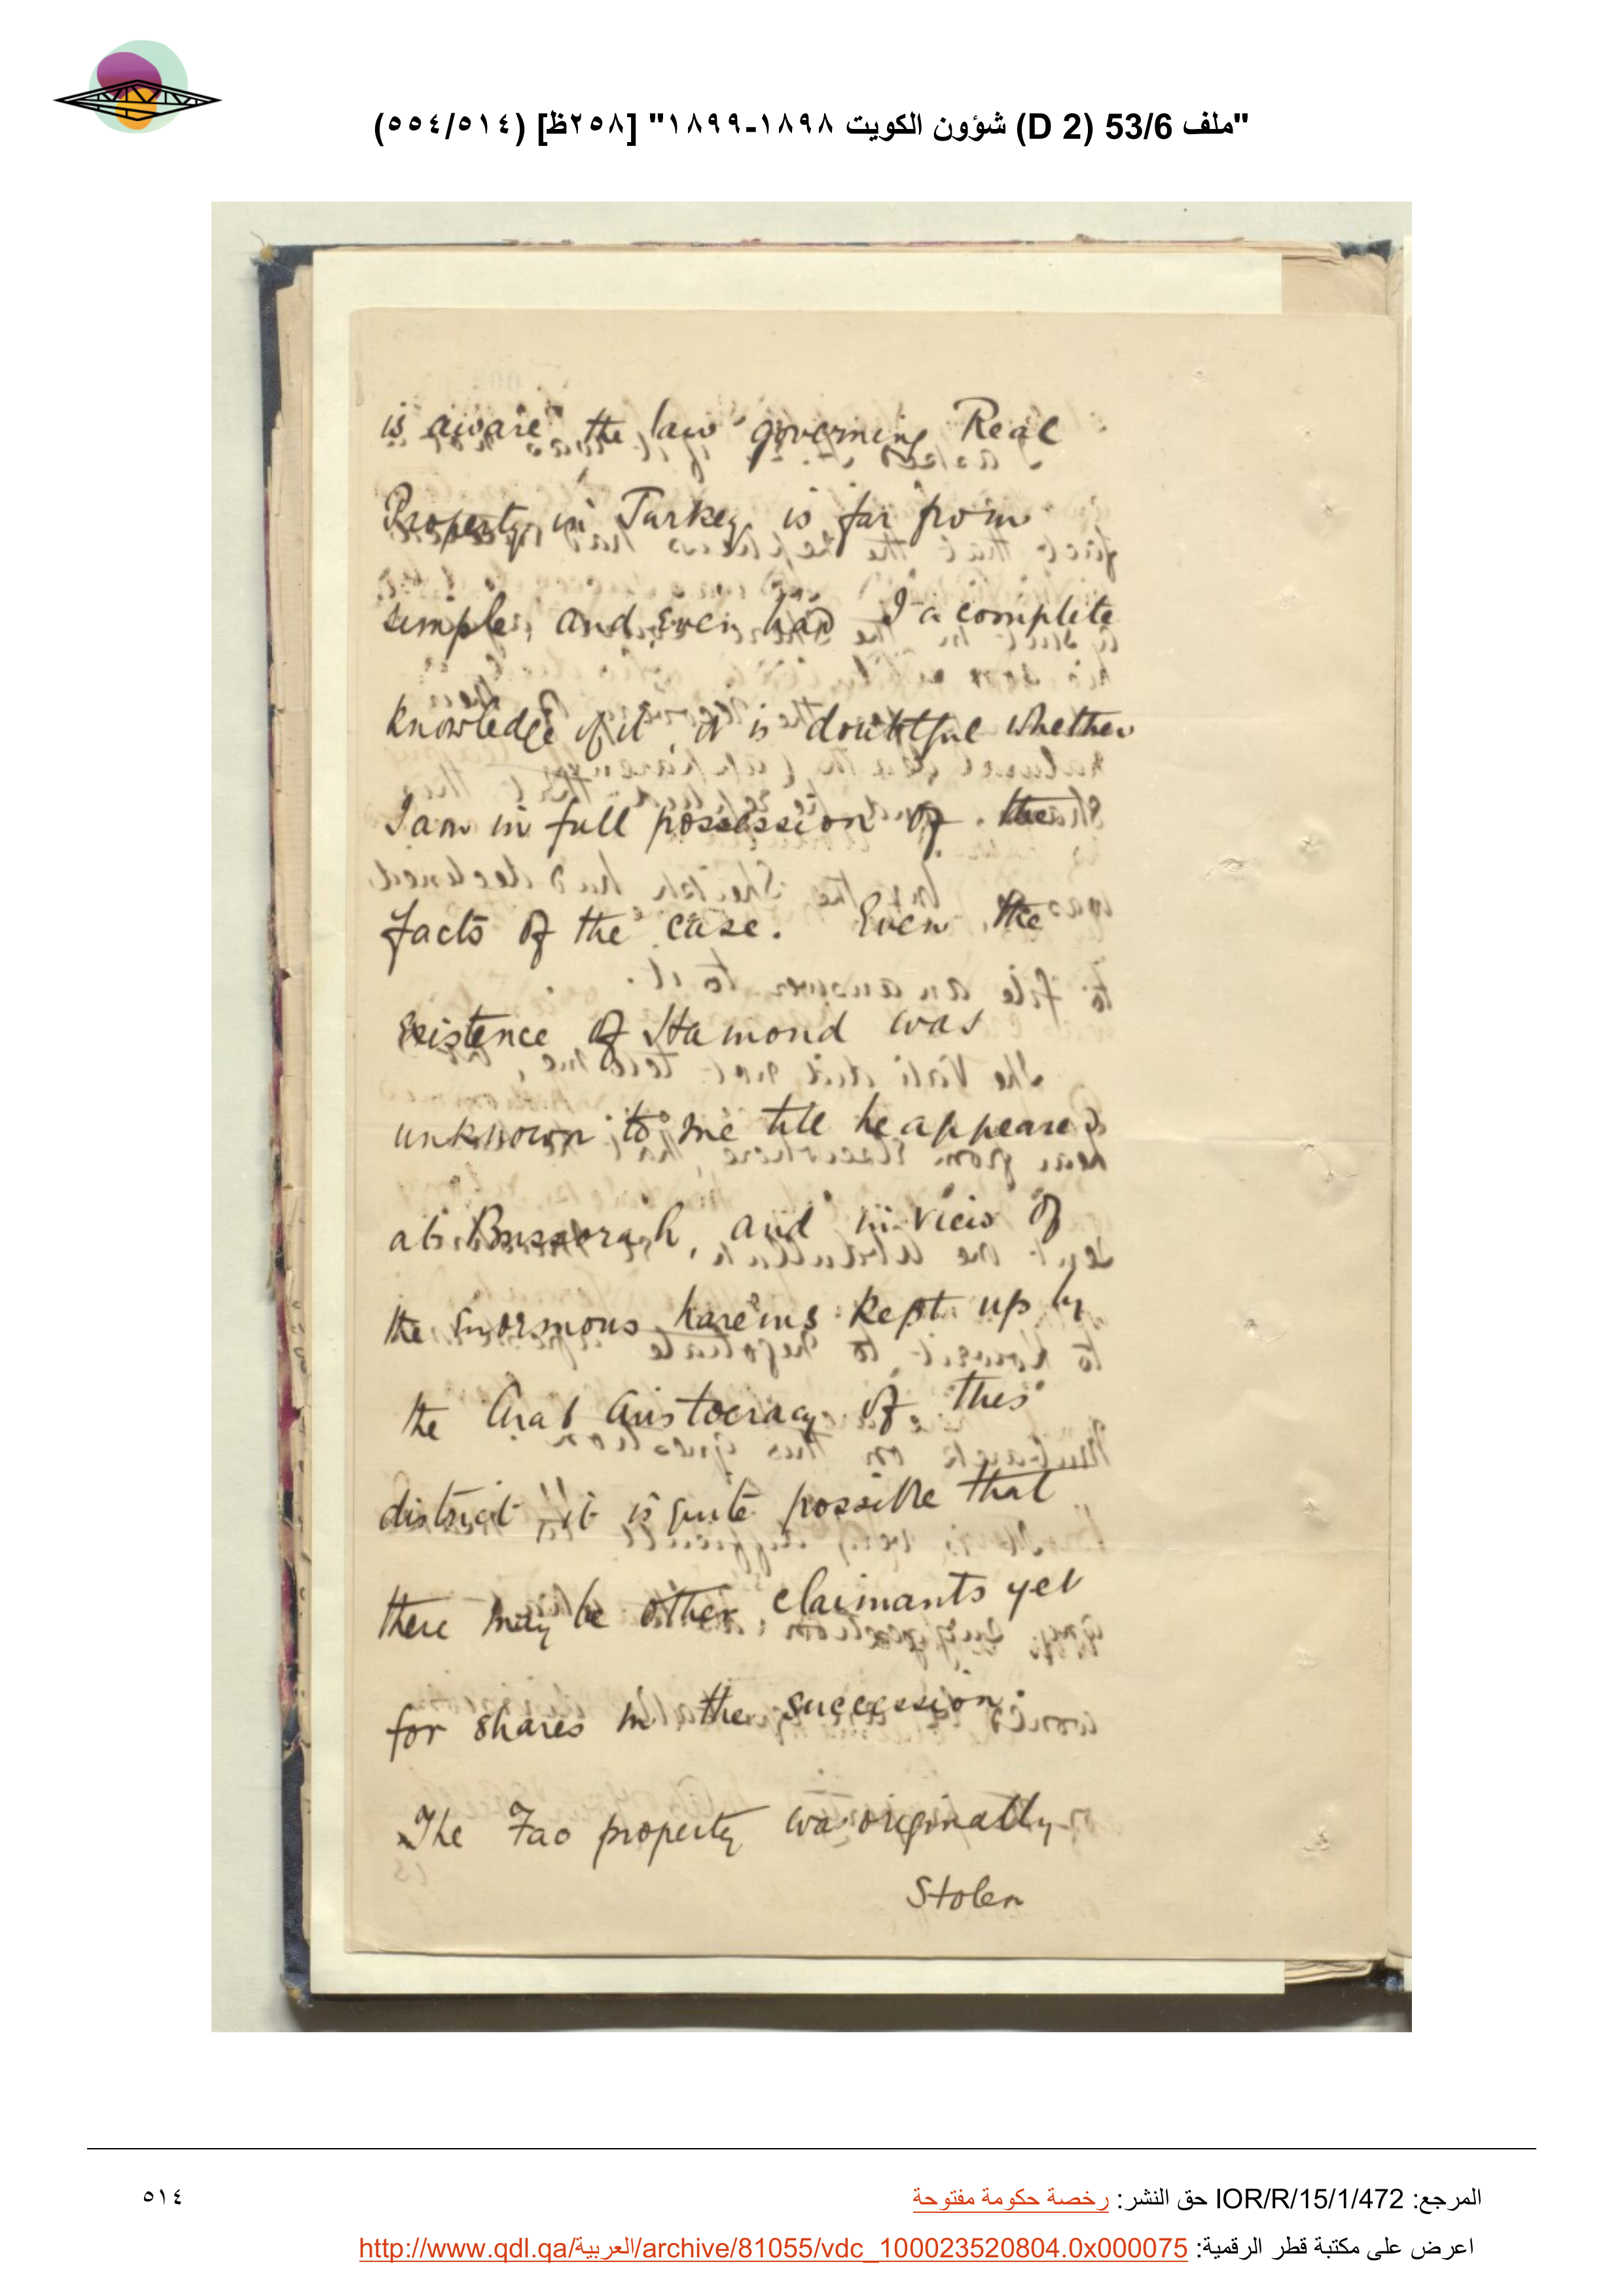 "ملف 53/6 (D 2) شؤون الكويت ١٨٩٨-١٨٩٩" [٢٥٨ظ] (٥١٤/٥٥٤)
is aware the law governing Real
Property in Turkey is far from
simple, and even had I a complete
knowledge of it, it is doubtful whether
I am in full possession of the
facts of the case. Even the
existence of Hamond was
unknown to me till he appeared
at Bussorah, and in view of
the enormous harems kept up by
the Arab Aristocracy of this
district, it is quite possible that
there may be other claimants yet
for shares in the succession.
The Fao property was originally
Stolen
المرجع: IOR/R/15/1/472 حق النشر: رخصة حكومة مفتوحة
اعرض على مكتبة قطر الرقمية: http://www.qdl.qa/العربية/archive/81055/vdc_100023520804.0x000075
٥١٤